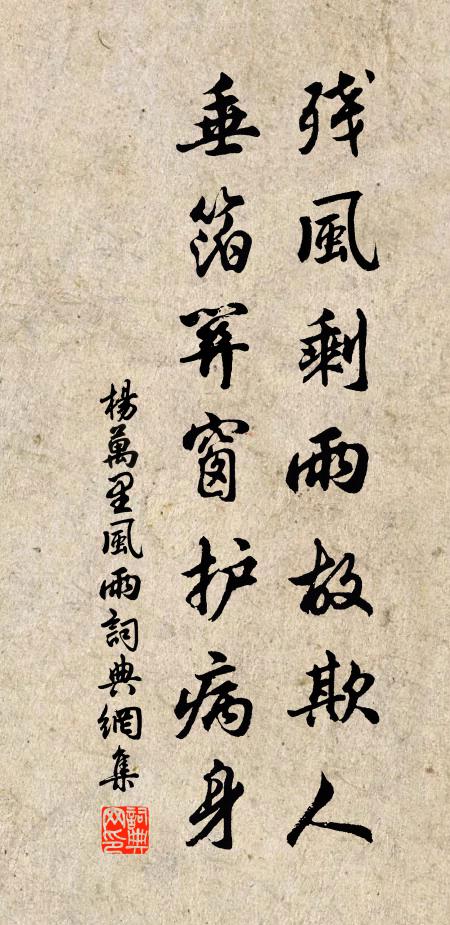 残風剩雨故欺人
垂箔關窗护病身
楊萬里風雨詞典網集
詞典
网印